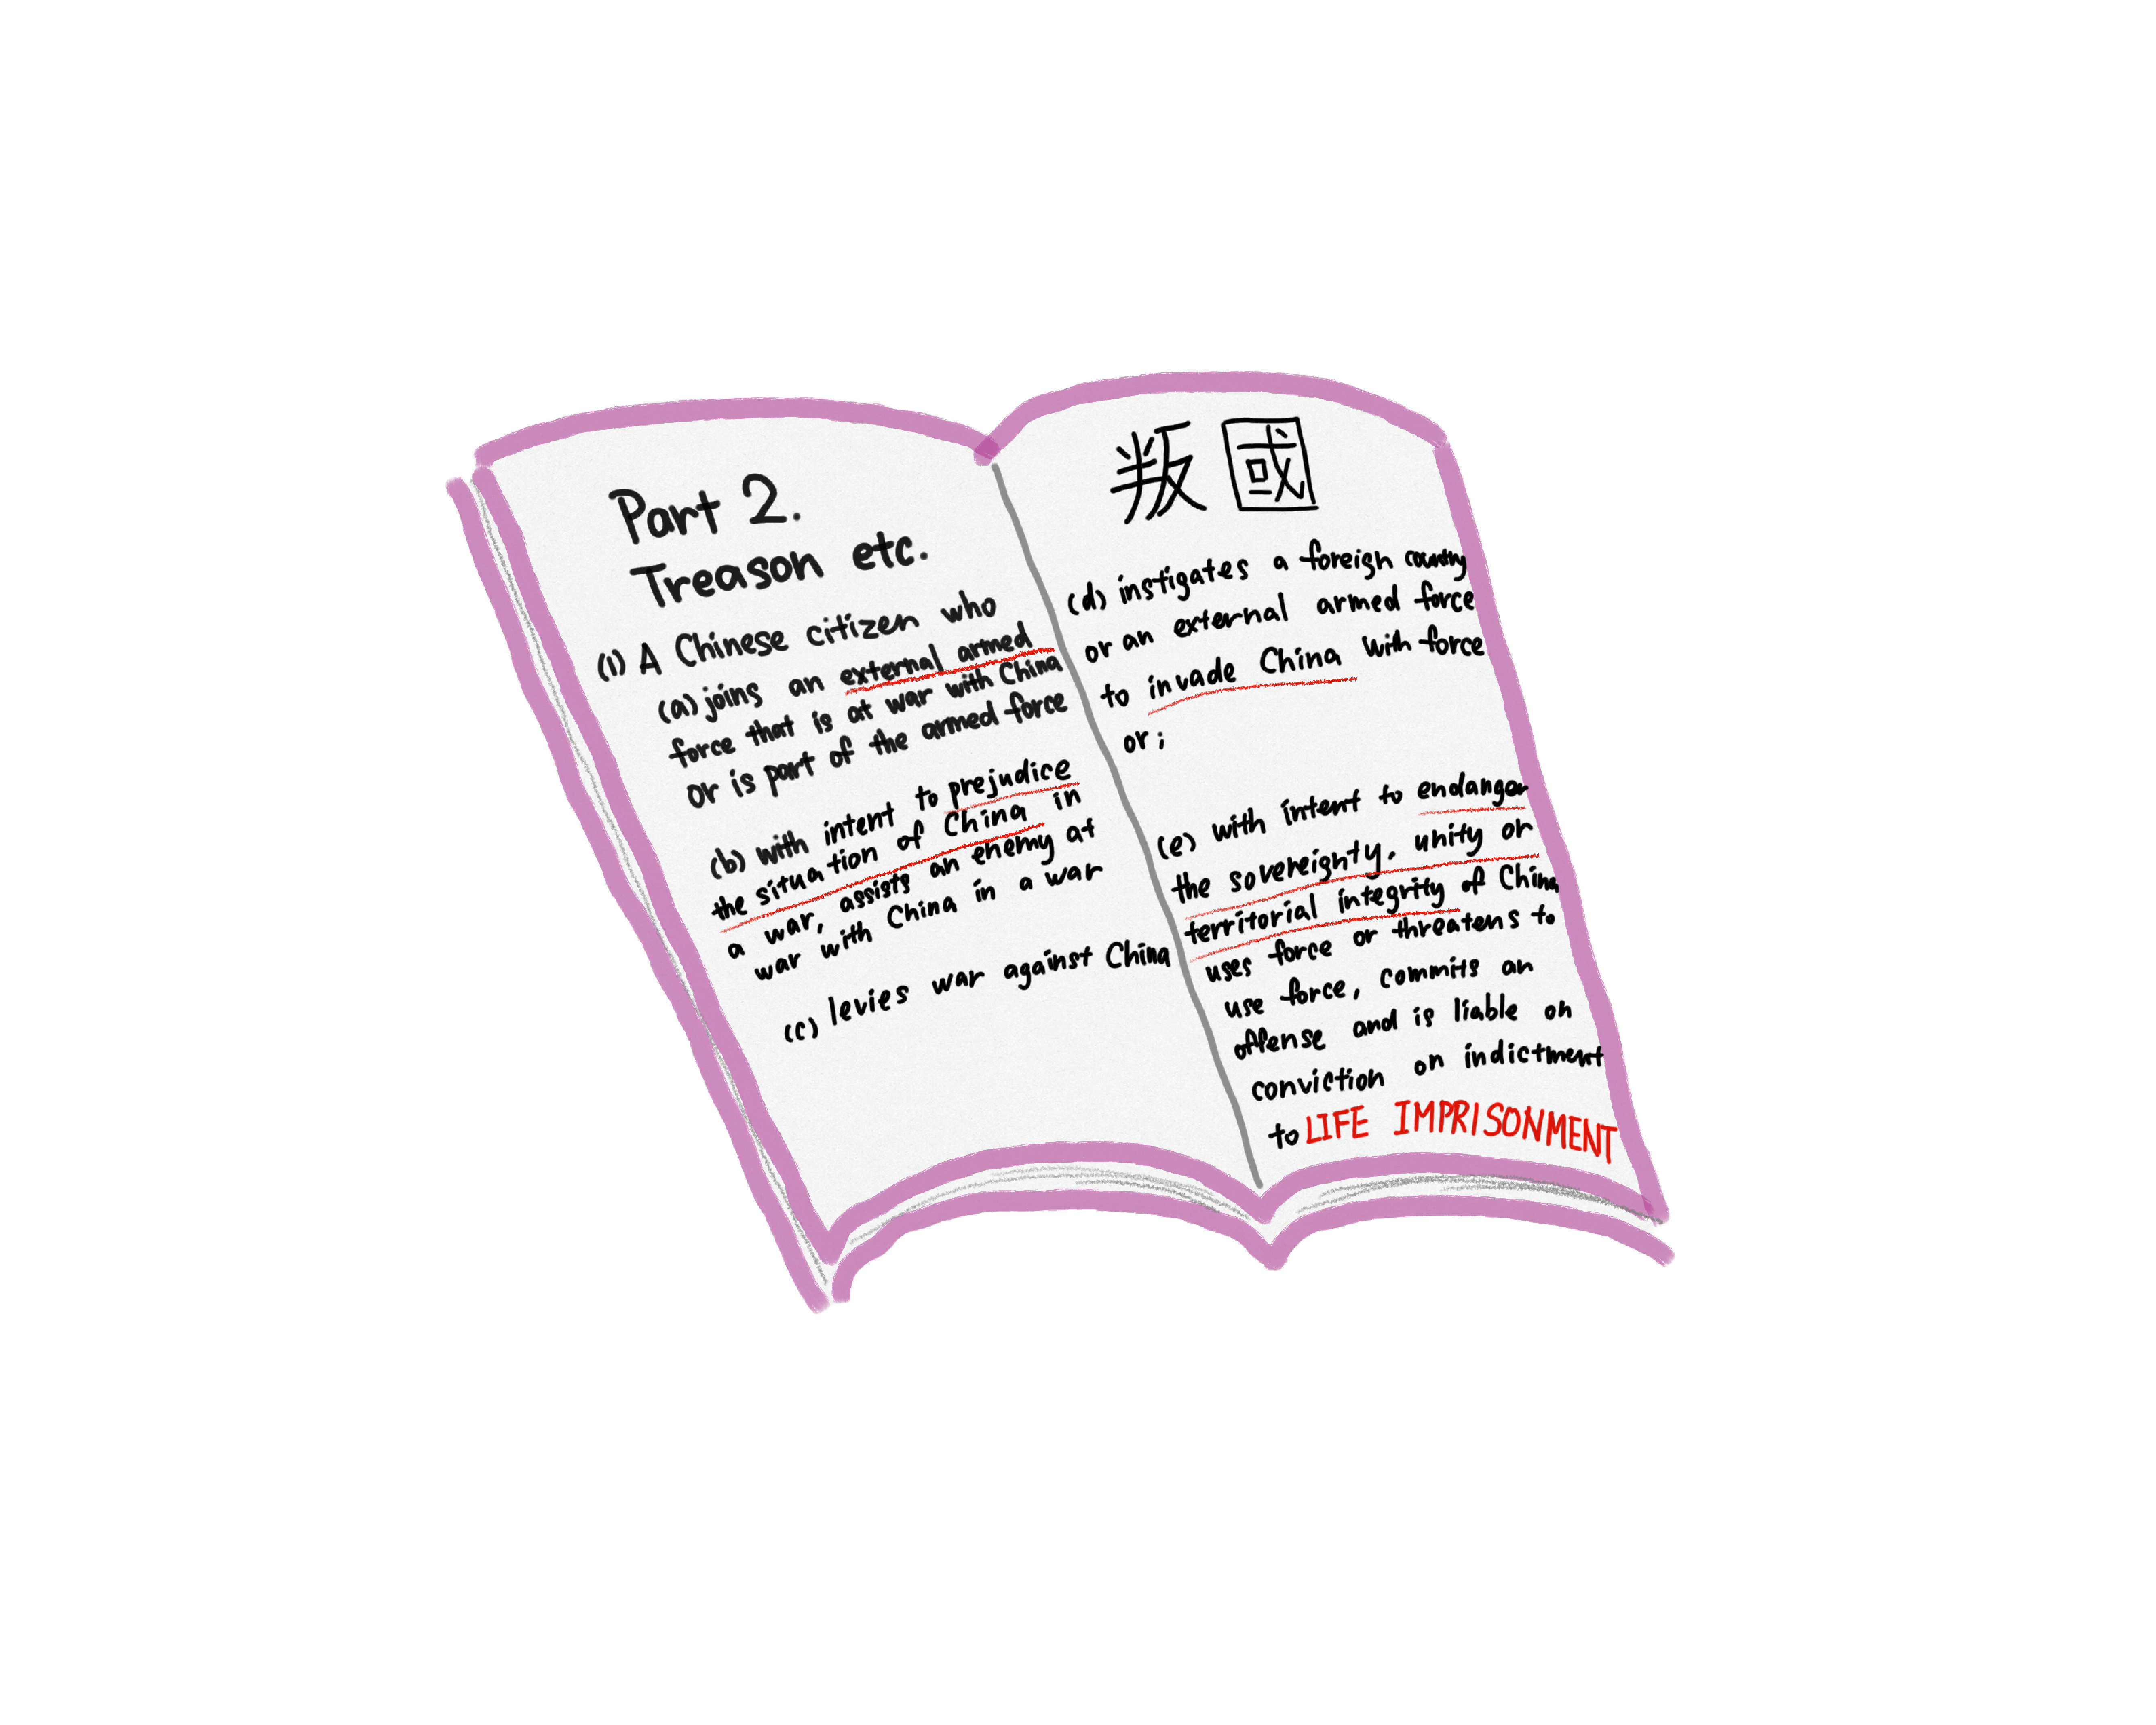 Part 2.
Treason etc.
(1) A Chinese citizen who
(a) joins an external armed
force that is at war with China
or is part of the armed force
(b) with intent to prejudice
the situation of China in
a war, assists an enemy at
war with China in a war
(c) levies war against China
叛國
(d) instigates a foreign country
or an external armed force
to invade China with force
or;
(e) with intent to endanger
the sovereignty, unity or
territorial integrity of China
uses force or threatens to
use force, commits an
offense and is liable on
conviction on indictment
to LIFE IMPRISONMENT